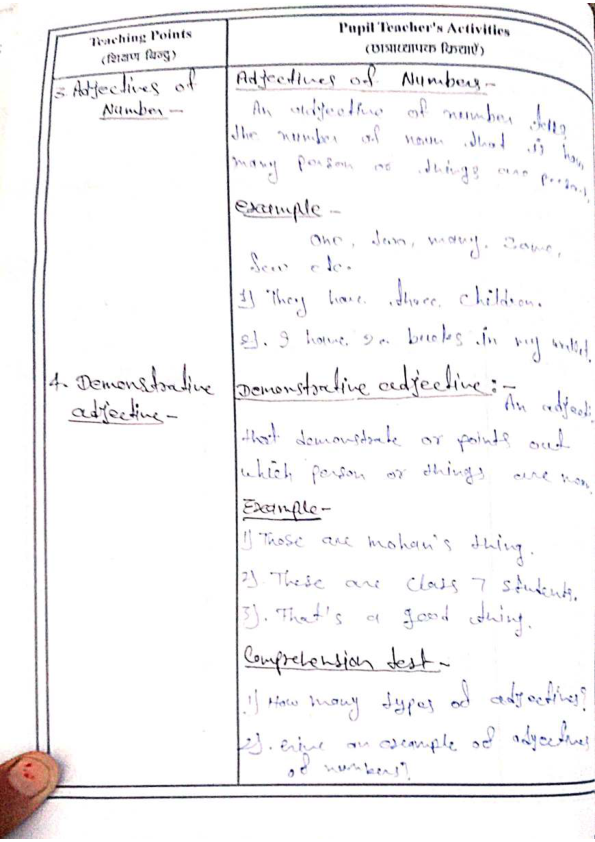 Teaching Points
(शिक्षण बिन्दु)
Pupil Teacher's Activities
(छात्राध्यापक क्रियाएँ)
3. Adjectives of
Number -
Adjectives of Numbers -
An adjective of number tells
the number of noun that is how
many person or things are
Example -
One, many, Some,
few etc.
1) They have three children.
2). I have books in my
4. Demonstrative
adjective -
Demonstrative adjective :-
An adjecti
that demonstrate or points out
which person or things are
Example -
1) Those are mohan's thing.
2). These are class 7 students.
3). That's a good thing.
Comprehension test -
1) How many types of adjectives?
2). Give an example of adjectives
of numbers?